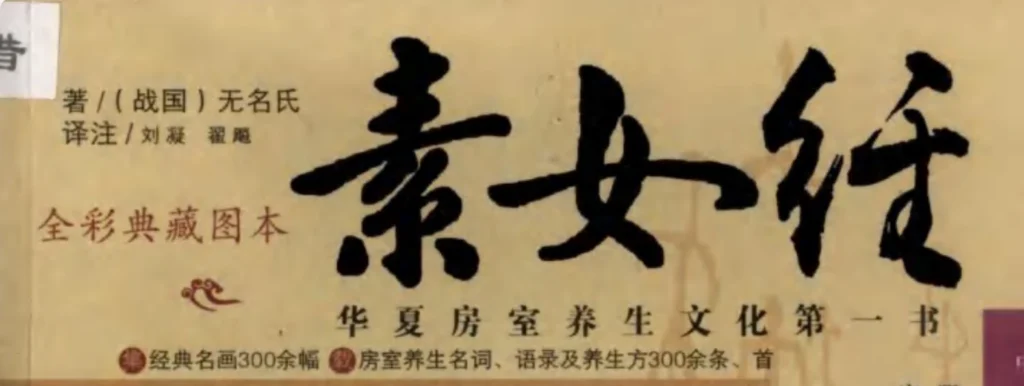 著/(战国)无名氏
译注/刘凝 翟飚
全彩典藏图本
素女经
华夏房室养生文化第一书
集 经典名画300余幅 数 房室养生名词、语录及养生方300余条、首